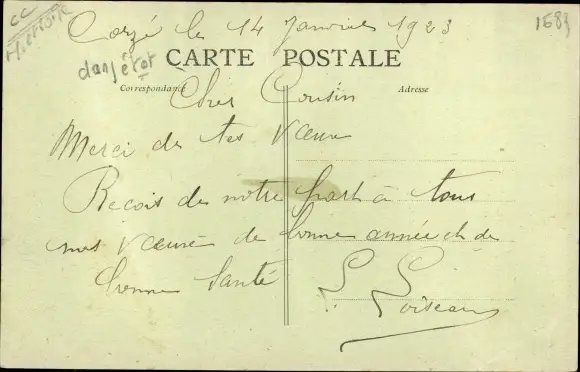 Corzé le 14 Janvier 1923
1683
CC
dans état
CARTE POSTALE
Correspondance
Adresse
Cher Cousin
Merci de tes vœux
Reçois de notre part à tous
mes vœux de bonne année et de
bonne Santé
Loiseau